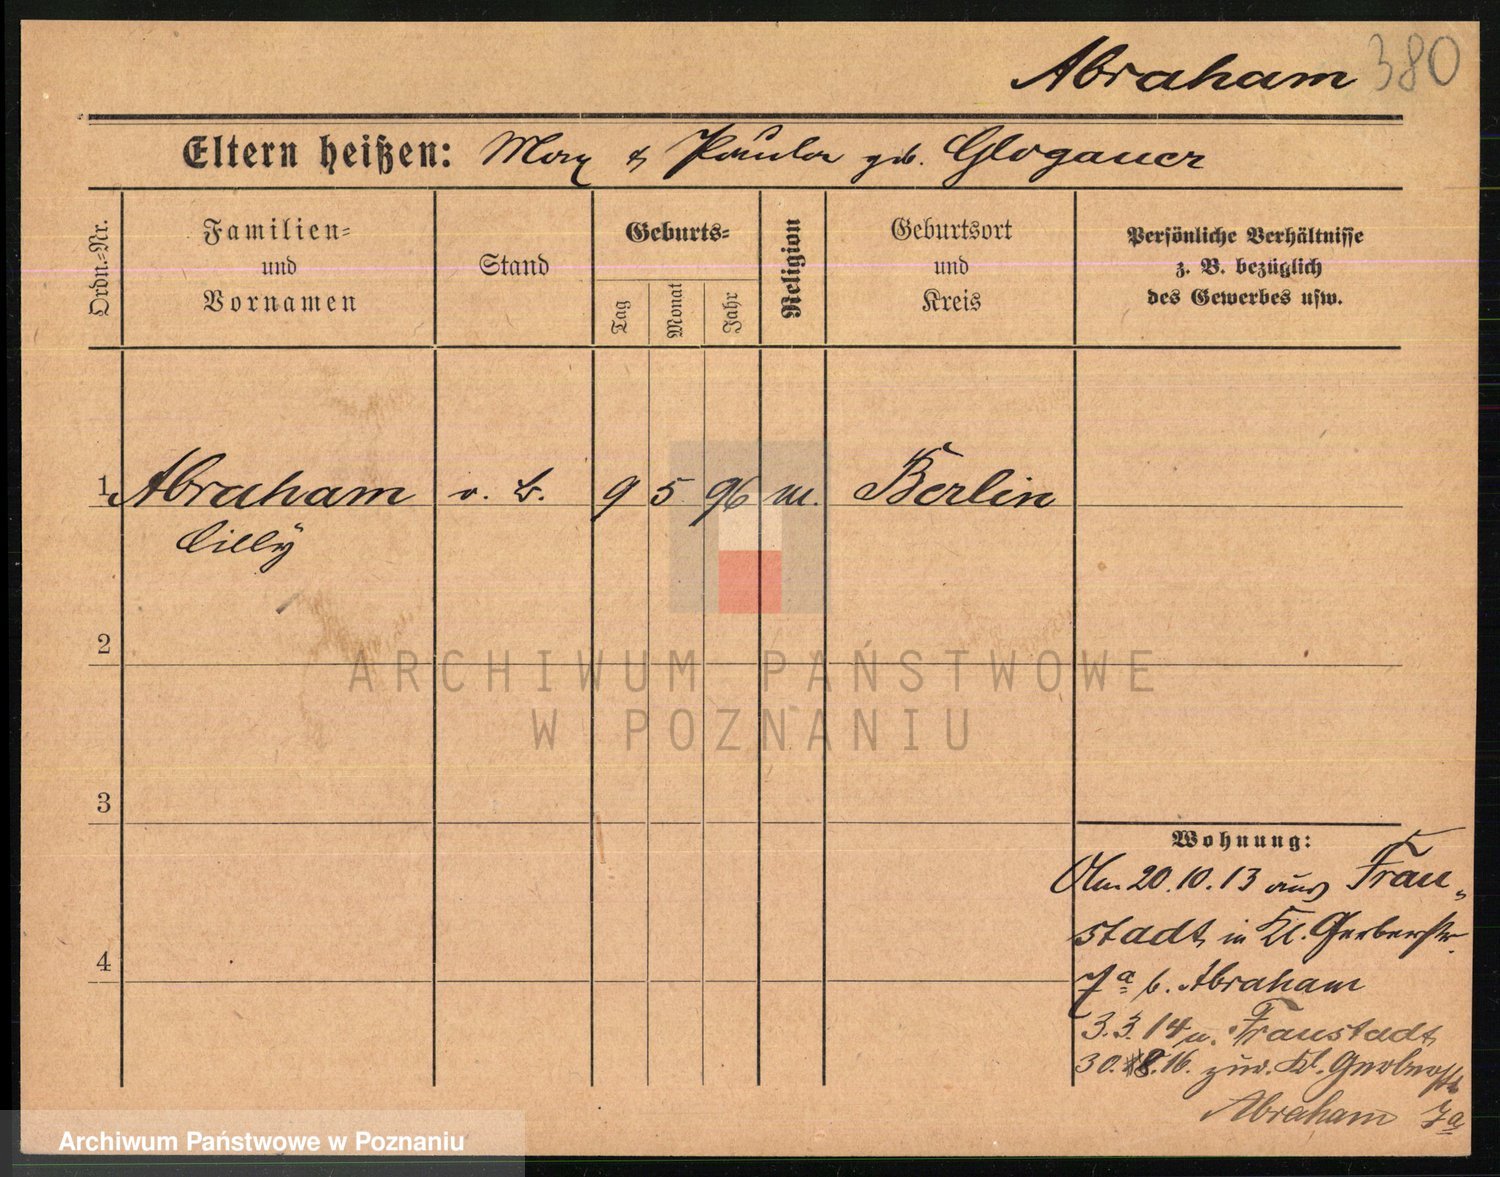 Abraham 380
Eltern heißen: Max & Paula geb. Glogauer
Ordn.-Nr.
Familien-
und
Vornamen
Stand
Geburts-
Tag
Monat
Jahr
Religion
Geburtsort
und
Kreis
Persönliche Verhältnisse
z. B. bezüglich
des Gewerbes usw.
1 Abraham o. B. 9 5 96 m. Berlin
Cilly
2
ARCHIWUM PAŃSTWOWE
W POZNANIU
3
Wohnung:
Am 20.10.13 aus Frau-
stadt in Kl. Gerberstr.
7a b. Abraham
3.3.14 n. Fraustadt
30.8.16. zur. Kl. Gerberstr
Abraham 7a
4
Archiwum Państwowe w Poznaniu